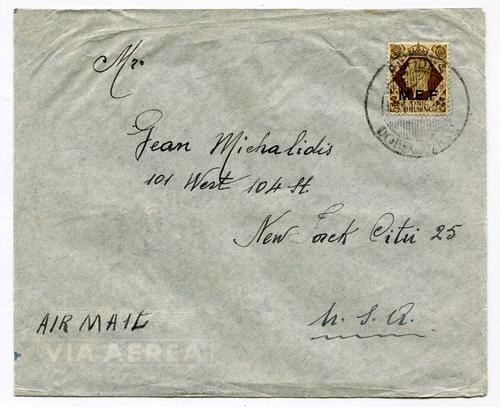 Mr.
M.E.F.
ONE
SHILLING
Jean Michalidis
101 West 104 St.
New Jorck Citii 25
U. S. A.
AIR MAIL
VIA AEREA